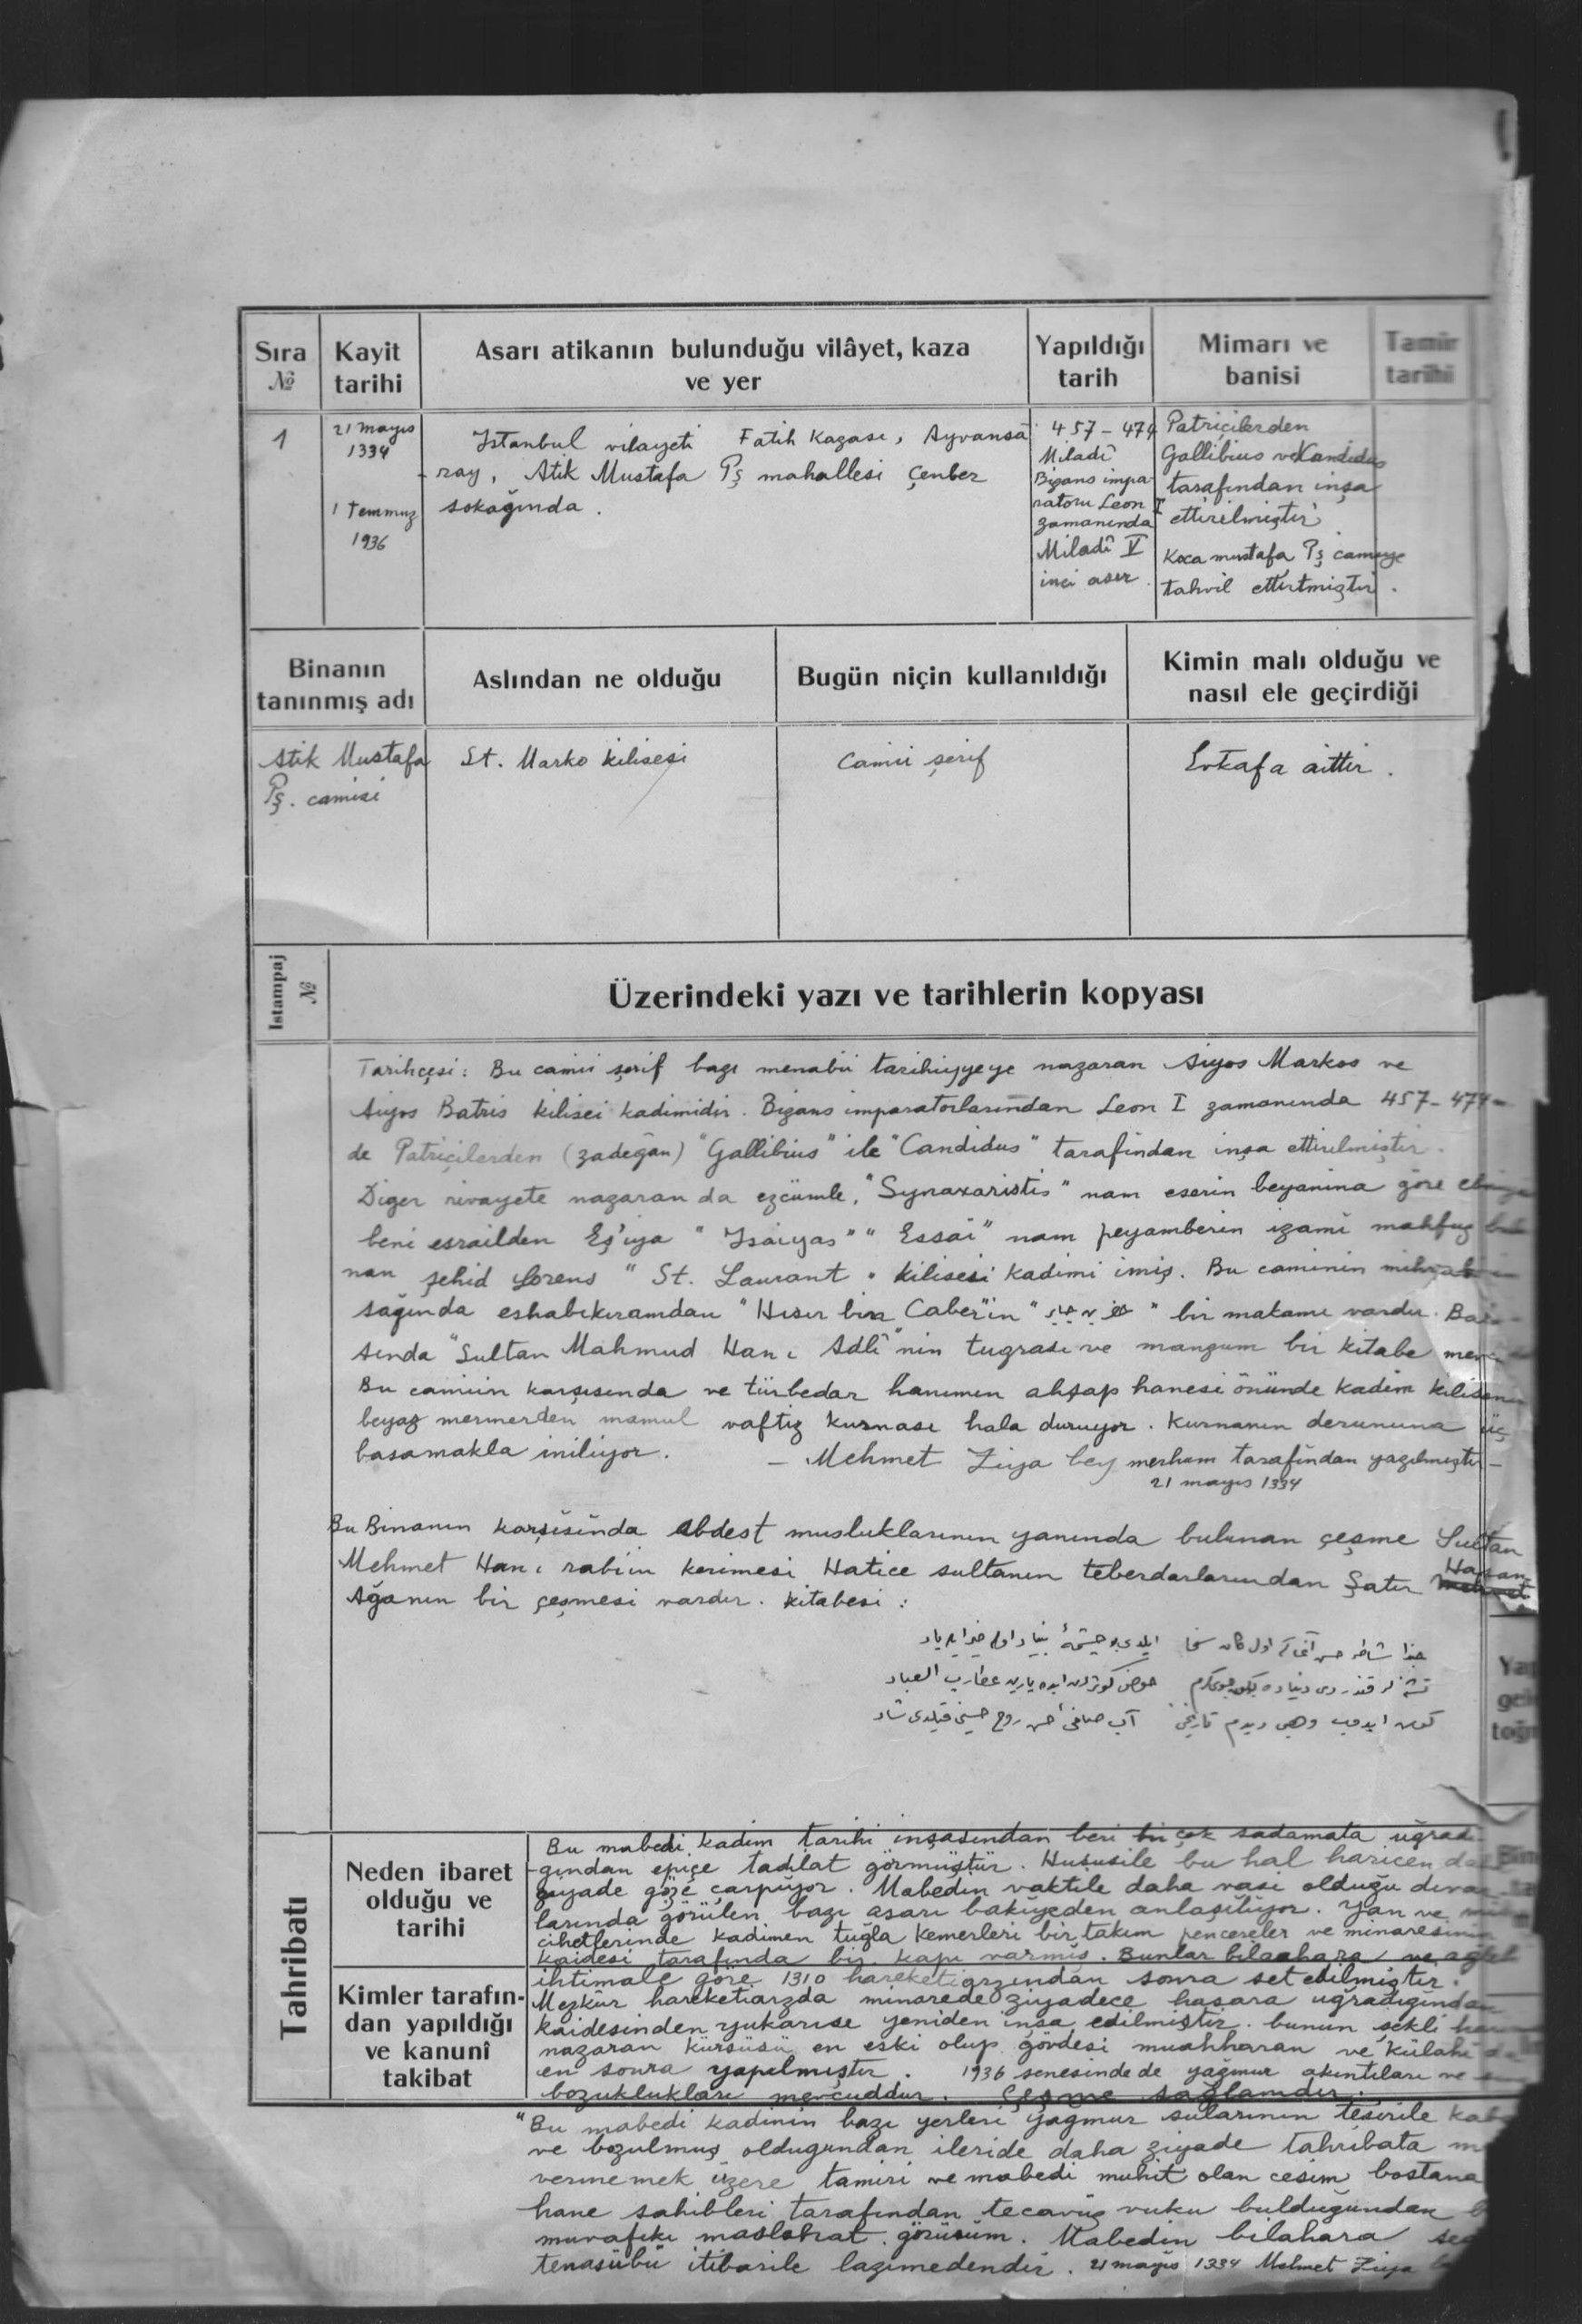 Sıra № Kayit tarihi Asarı atikanın bulunduğu vilâyet, kaza ve yer Yapıldığı tarih Mimarı ve banisi Tamir tarihi
1
21 mayıs
1334
1 Temmuz
1936
Istanbul vilayeti Fatih Kazası, Ayvansa
ray, Atik Mustafa Pş mahallesi Çenber
sokağında.
457-474
Miladî
Bizans impa
ratoru Leon I
zamanında
Miladî V
inci asır.
Patriçilerden
Gallibius ve Kandidus
tarafından inşa
ettirilmiştir
Koca mustafa Pş camiye
tahvil ettirtmiştir.
Binanın tanınmış adı Aslından ne olduğu Bugün niçin kullanıldığı Kimin malı olduğu ve nasıl ele geçirdiği
Atik Mustafa
Pş. camisi
St. Marko kilisesi
Camii şerif
Evkafa aittir.
Istampaj №
Üzerindeki yazı ve tarihlerin kopyası
Tarihçesi: Bu camii şerif bazı menabii tarihiyyeye nazaran Aiyos Markos ve
Aiyos Batris kilisei kadimidir. Bizans imparatorlarından Leon I zamanında 457-474
de Patriçilerden (zadegân) "Gallibius" ile "Candidus" tarafından inşa ettirilmiştir.
Diger rivayete nazaran da ezcümle, "Synaxaristis" nam eserin beyanina göre
beni esrailden Eş'iya "Isaiyas" "Essai" nam peyamberin izamı mahfuz
nan şehid Lorens "St. Laurant" kilisesi kadimi imiş. Bu caminin
sağında eshabıkıramdan "Hısır bin Caber'in" bir makamı vardır.
sında "Sultan Mahmud Han ı Adlî"nin tugrası ve manzum bir kitabe
Bu camiin karşısında ve türbedar hanımın ahşap hanesi önünde kadim kilisenin
beyaz mermerden mamul vaftiz kurnası hala duruyor. Kurnanın derununa üç
basamakla iniliyor. – Mehmet Ziya bey merhum tarafından yazılmıştır –
21 mayıs 1334
Bu Binanın karşısında abdest musluklarının yanında bulunan çeşme Sultan
Mehmet Han ı rabiin kerimesi Hatice sultanın teberdarlarından Şatır Hasan
Ağanın bir çeşmesi vardır. Kitabesi:
Tahribatı
Neden ibaret olduğu ve tarihi
Bu mabedi kadim tarihi inşasından beri bir çok sadamata uğradı-
ğından epiçe tadilat görmüştür. Hususile bu hal haricen
ziyade göze çarpıyor. Mabedin vaktile daha vasi olduğu
larında görülen bazı asarı bakiyeden anlaşılıyor. Yan ve
cihetlerinde kadimen tuğla kemerleri bir takım pencereler ve minaresinin
kaidesi tarafında bir kapı varmış. Bunlar bilaahara ve
Kimler tarafın-dan yapıldığı ve kanunî takibat
ihtimale göre 1310 hareketiarzından sonra set edilmiştir.
Mezkûr hareketiarzda minarede ziyadece hasara uğradığından
kaidesinden yukarısı yeniden inşa edilmiştir. bunun şekli
nazaran kürsüsü en eski olup gövdesi muahharan ve külahı
en sonra yapılmıştır. 1936 senesinde de yağmur akıntıları ve
bozuklukları mevcuddur. Çeşme sağlamdır.
"Bu mabedi kadimin bazı yerleri yagmur sularının tesirile
ve bozulmuş oldugundan ileride daha ziyade tahribata
vermemek üzere tamiri ve mabedi muhit olan cesim bostana
hane sahibleri tarafından tecavüz vuku bulduğundan
muvafıkı maslahat görürüm. Mabedin bilahara
tenasübü itibarile lazımedendir. 21 mayıs 1334 Mehmet Ziya